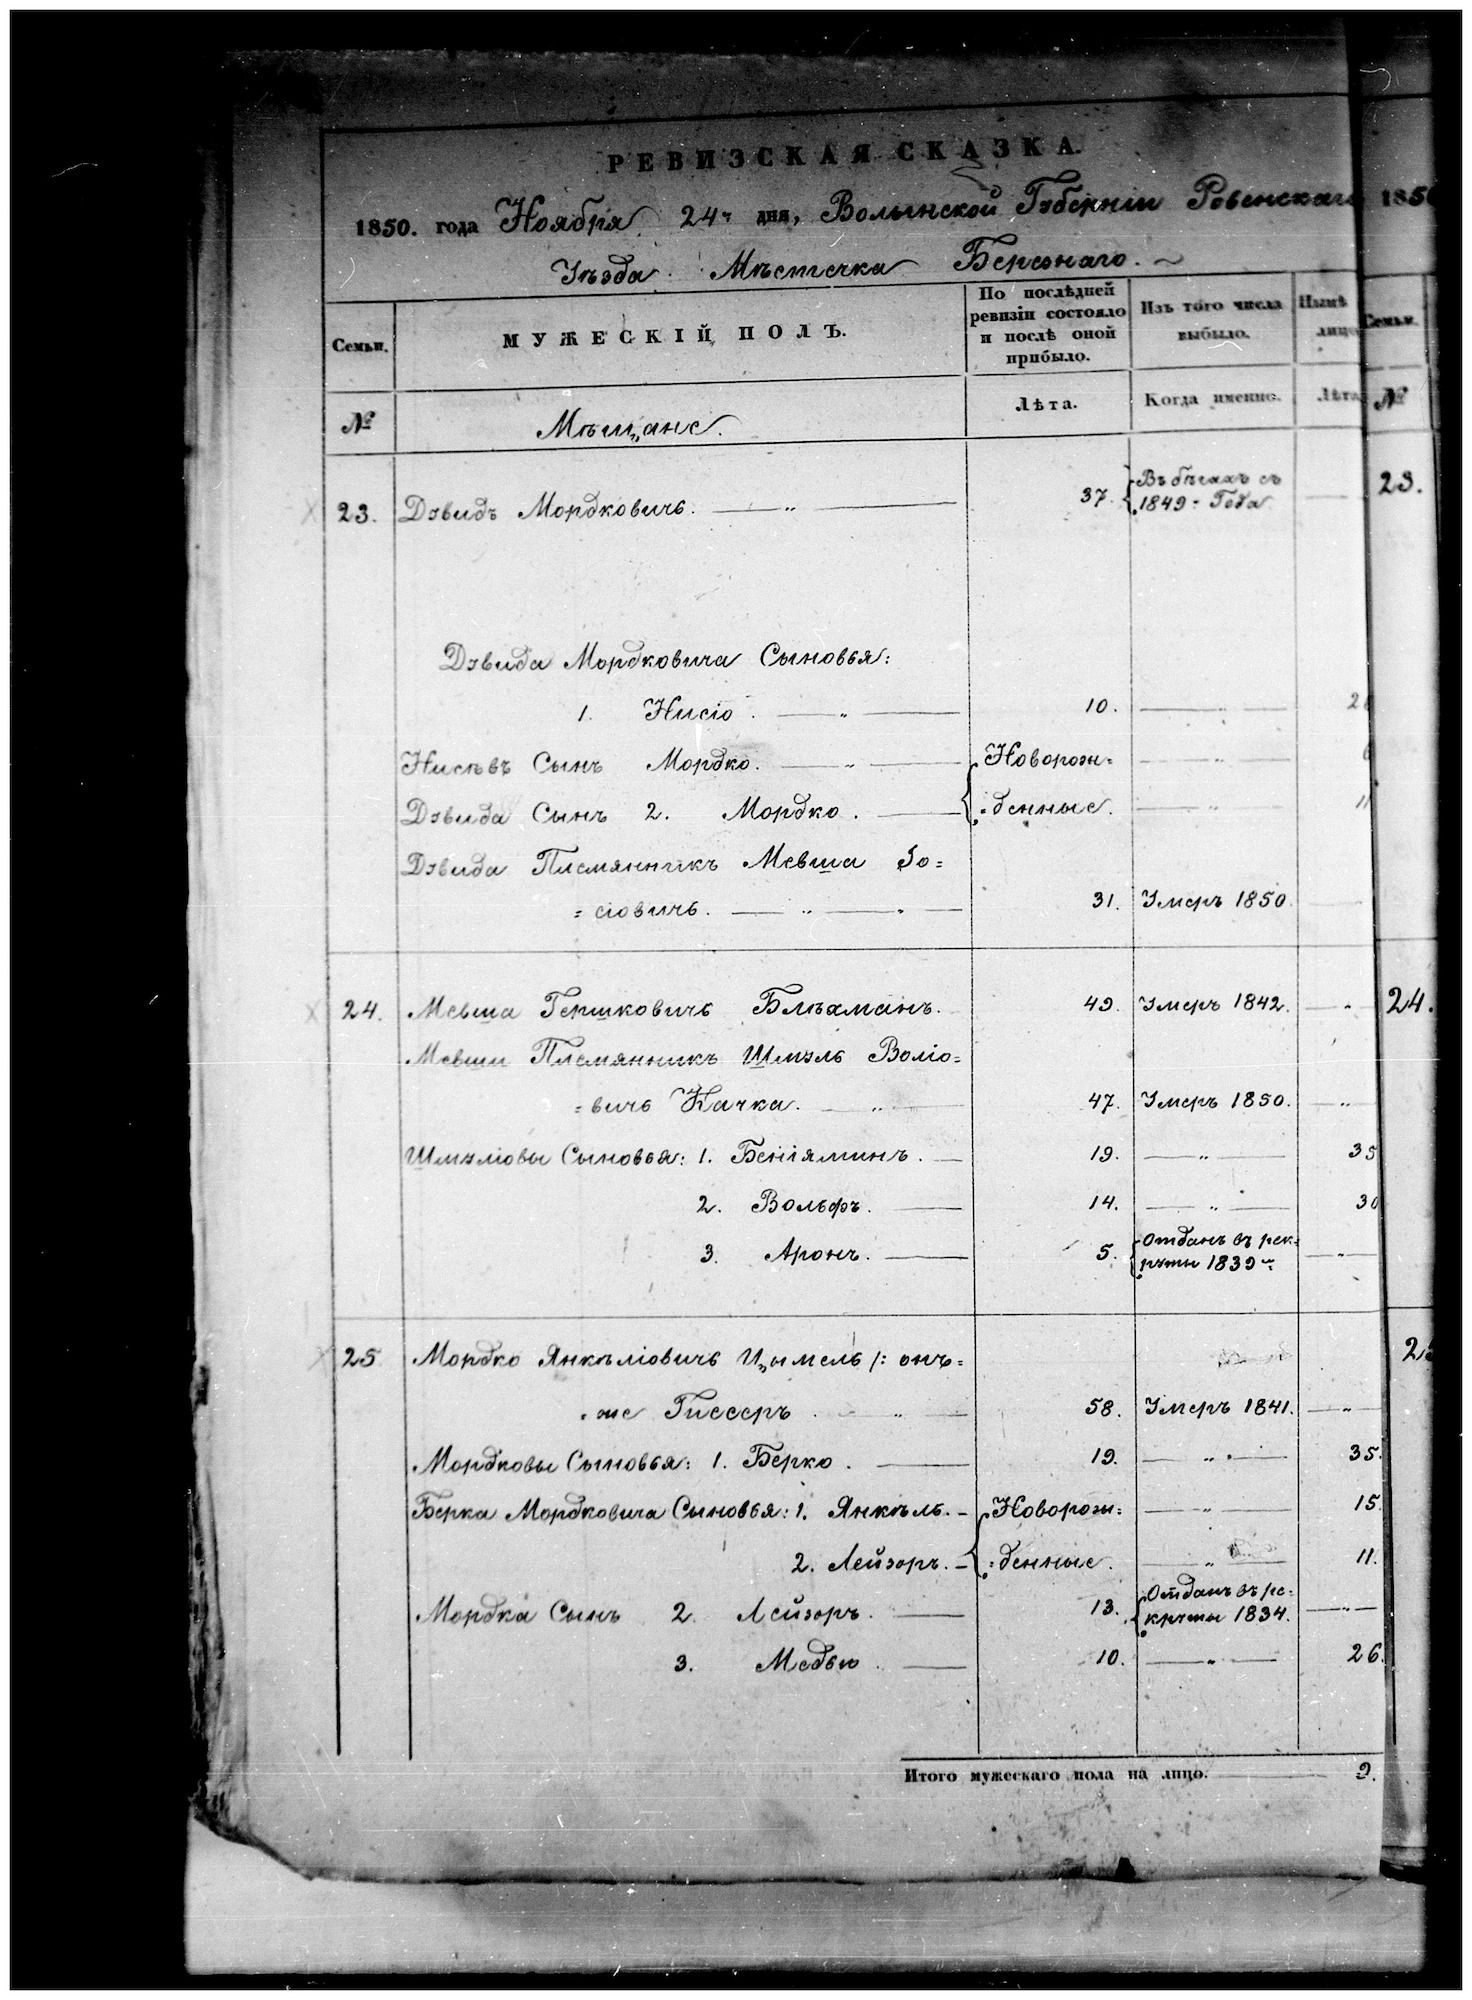 РЕВИЗСКАЯ СКАЗКА.
1850. года Ноября 24го дня, Волынской Губерніи Ровенскаго
Уѣзда Мѣстечка Березнаго.
Семьи.
МУЖЕСКІЙ ПОЛЪ.
По послѣдней ревизіи состояло и послѣ оной прибыло.
Изъ того числа выбыло.
Нынѣ лицо
Семьи.
№
Мѣщане.
Лѣта.
Когда именно.
Лѣта
№
23. Дэвидъ Мордковичъ. — „ — 37. Въ бѣгахъ съ 1849 = Года — 23.
Дэвида Мордковича Сыновья:
1. Нисіо. — „ — 10. — „ —
Нисѣвъ Сынъ Мордко. — „ — Новорож= — „ —
Дэвида Сынъ 2. Мордко. — =денные. — „ — 11
Дэвида Племянникъ Мевша Іо=
=сіовичъ. — „ — 31. Умеръ 1850. —
24. Мевша Гершковичъ Блѣхманъ. 49. Умеръ 1842. — „ 24.
Мевши Племянникъ Шмэль Воліо=
=вичъ Качка. — „ — 47. Умеръ 1850. — „
Шмэліовы Сыновья: 1. Беніяминъ. — 19. — „ — 35
2. Вольфъ. — 14. — „ — 30
3. Аронъ. — 5. Отданъ въ рек=руты 1839го — „ —
25 Мордко Янкѣліовичъ Цымель /: онъ=
=же Гиссеръ. — „ — 58. Умеръ 1841. — „ —
Мордковы Сыновья: 1. Берко. — 19. — „ — 35.
Берка Мордковича Сыновья: 1. Янкѣль. — Новорож= — „ — 15.
2. Лейзоръ. — =денные. — „ — 11.
Мордка Сынъ 2. Лейзоръ. — 13. Отданъ въ ре=круты 1834. — „ —
3. Медью. — 10. — „ — 26.
Итого мужескаго пола на лицо. 9.